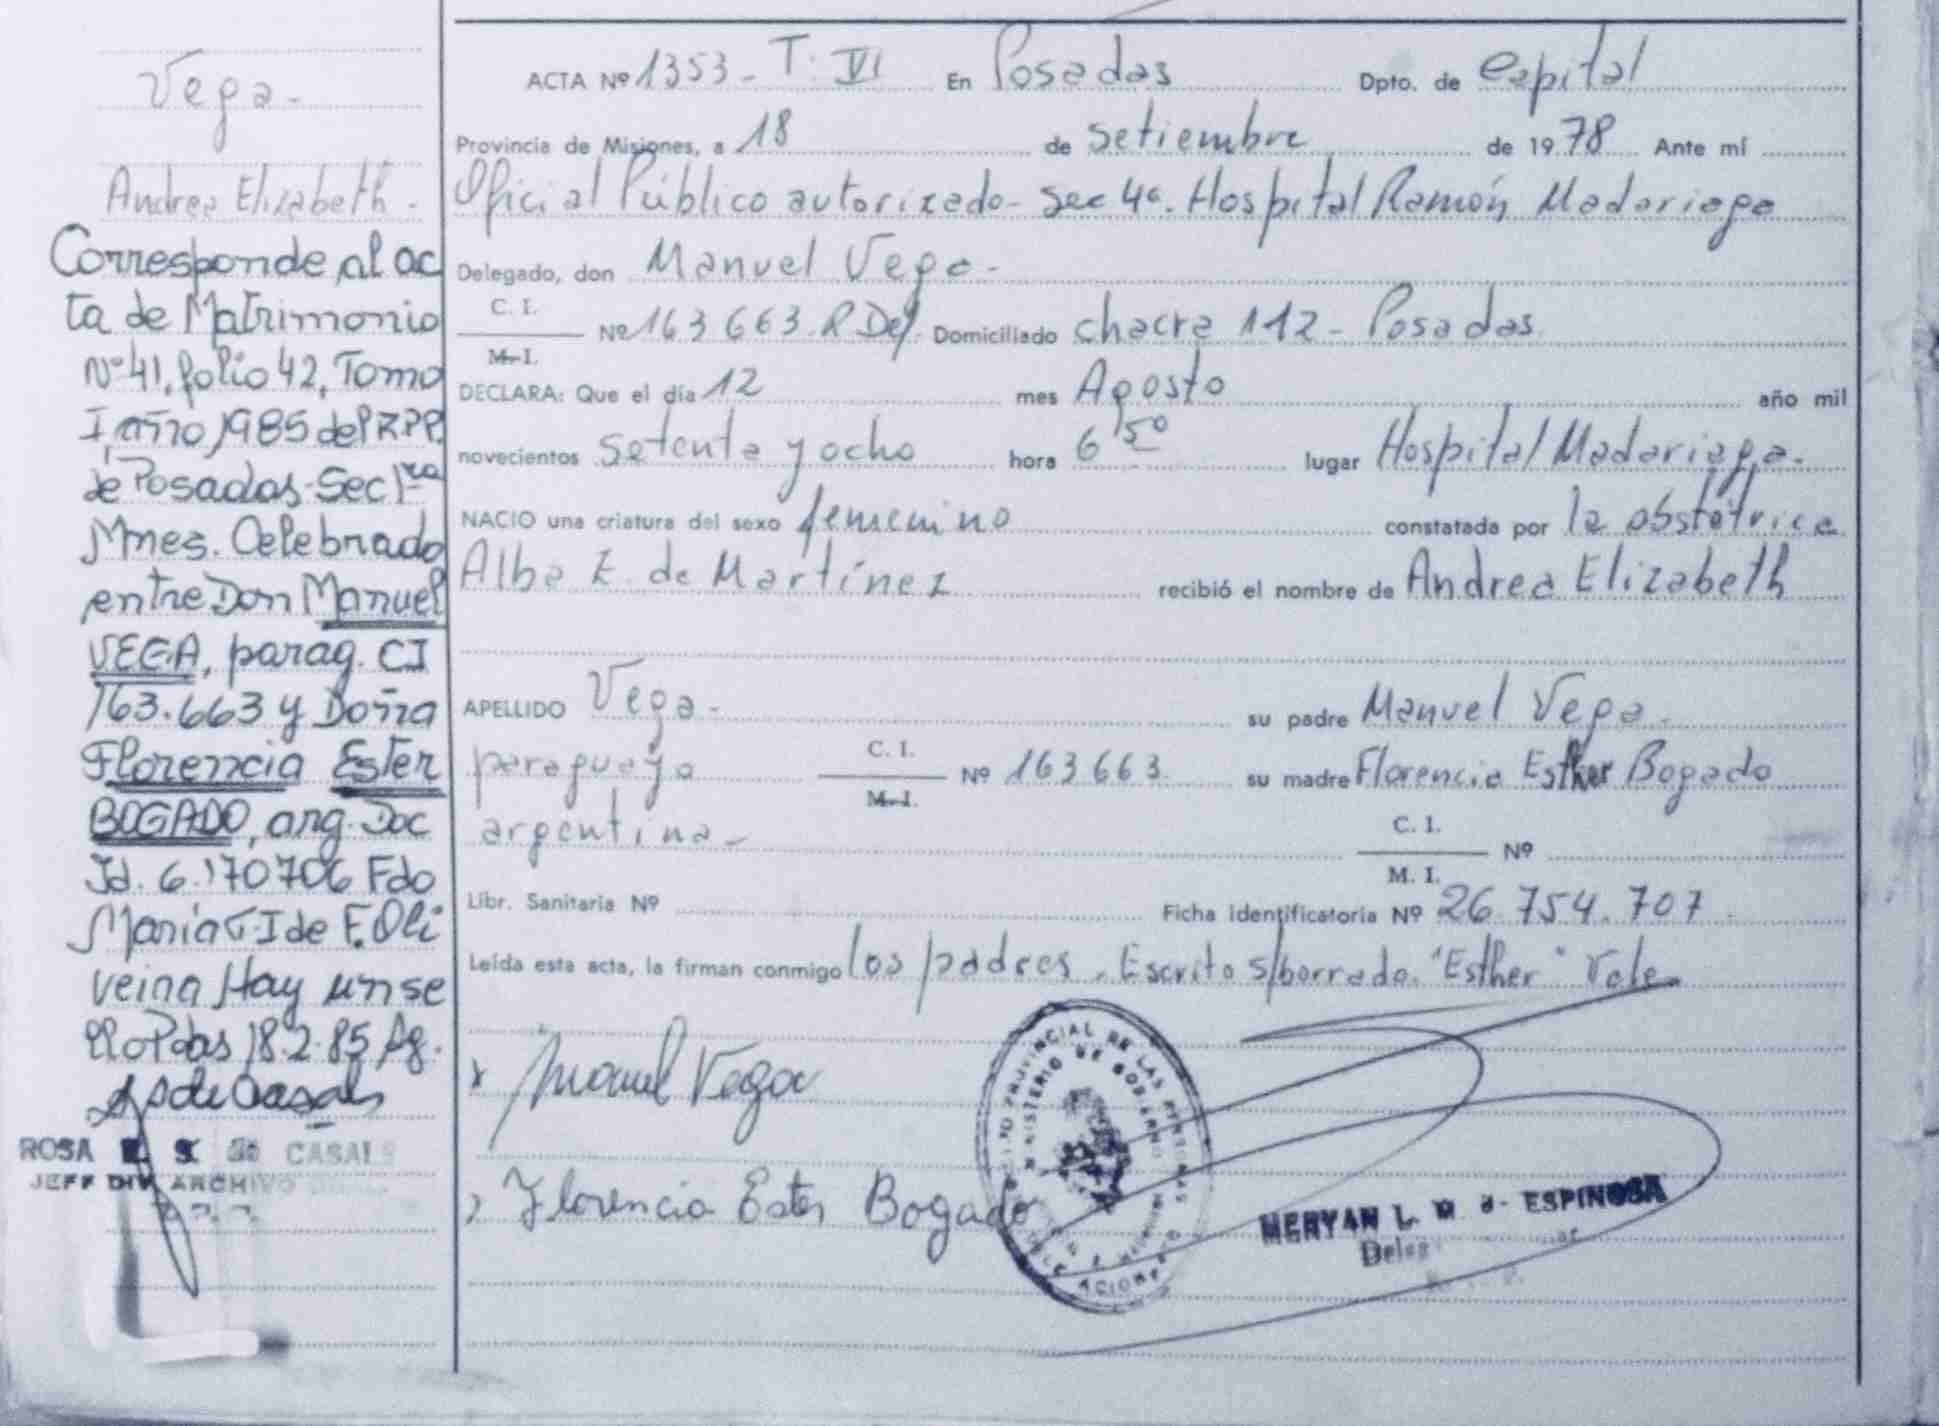 Vega-
Andrea Elizabeth.
Corresponde al ac
ta de Matrimonio
Nº 41, folio 42, Tomo
I año 1985 del RPP.
de Posadas-Sec 1ra
Mnes. Celebrado
entre Don Manuel
VEGA, parag. CI
163.663 y Doña
Florencia Ester
BOGADO, arg. Doc
Id. 6.170706 Fdo
María I de F. Oli
veira Hay un se
llo Pdas 18.2.85 Ag.
ROSA CASALS
JEFE DIV ARCHIVO
ACTA Nº 1353- T. VI En Posadas Dpto. de Capital
Provincia de Misiones, a 18 de Setiembre de 1978 Ante mí
Oficial Público autorizado- Sec 4ª. Hospital Ramón Madariaga
Delegado, don Manuel Vega-
C. I.
M. I.
Nº 163663. R Del. Domiciliado chacra 112- Posadas.
DECLARA: Que el día 12 mes Agosto año mil
novecientos setenta y ocho hora 6 50 lugar Hospital Madariaga.
NACIO una criatura del sexo femenino constatada por la obstétrica
Alba E. de Martínez recibió el nombre de Andrea Elizabeth
APELLIDO Vega- su padre Manuel Vega-
paraguayo C. I. M. I. Nº 163663. su madre Florencia Esther Bogado
argentina- C. I. M. I. Nº
Libr. Sanitaria Nº Ficha identificatoria Nº 26.754.707.
Leída esta acta, la firman conmigo los padres. Escrito s/borrado. "Esther" Vale
x Manuel Vega
Florencia Ester Bogado
PROVINCIAL DE LAS PERSONAS
MINISTERIO DE GOBIERNO
MERYAN L. ESPINOSA